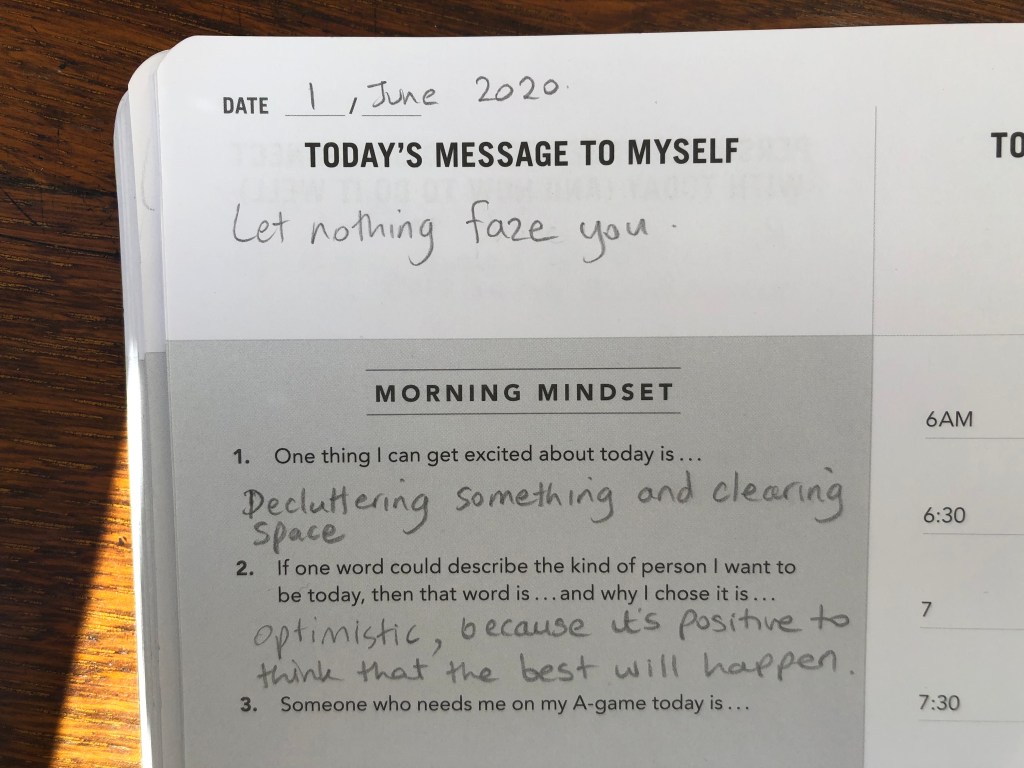 DATE 1 / June 2020.
TODAY'S MESSAGE TO MYSELF
Let nothing faze you.
MORNING MINDSET
1. One thing I can get excited about today is...
Decluttering something and clearing
space
2. If one word could describe the kind of person I want to
be today, then that word is...and why I chose it is...
optimistic, because it's positive to
think that the best will happen.
3. Someone who needs me on my A-game today is...
TO
6AM
6:30
7
7:30